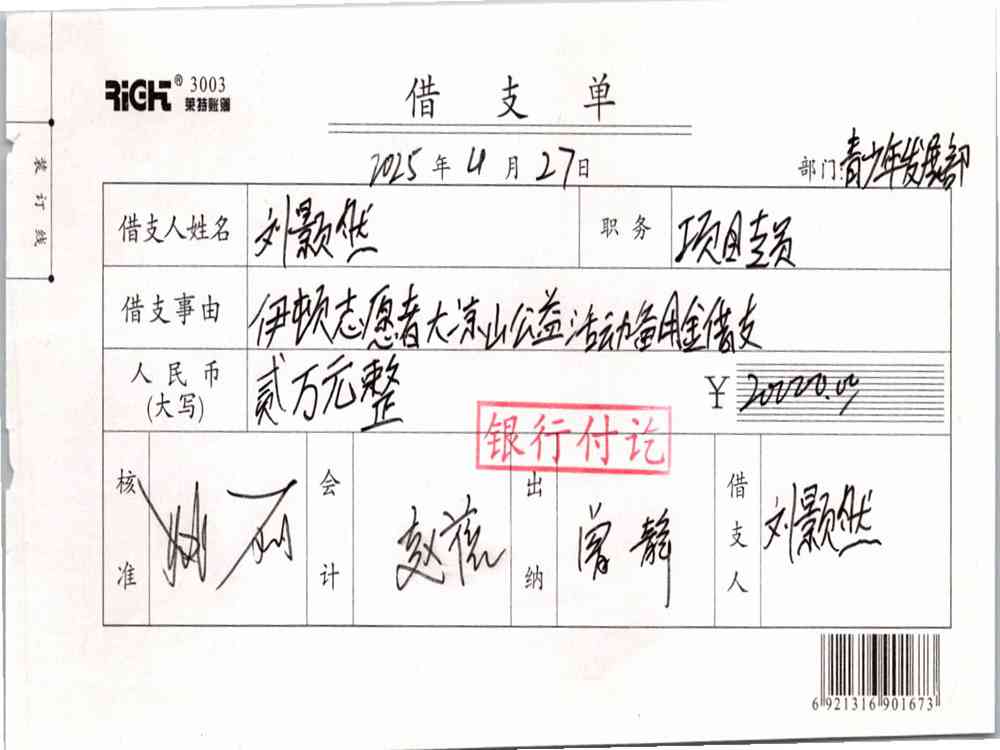 RIGHT® 3003
莱特账簿
借支单
2025年4月27日 部门:青少年发展部
装订线
借支人姓名 刘颢然 职务 项目专员
借支事由 伊顿志愿者大凉山公益活动备用金借支
人民币(大写) 贰万元整 ¥20000.00
银行付讫
核准 会计 赵 出纳 曾静 借支人 刘颢然
6 921316 901673